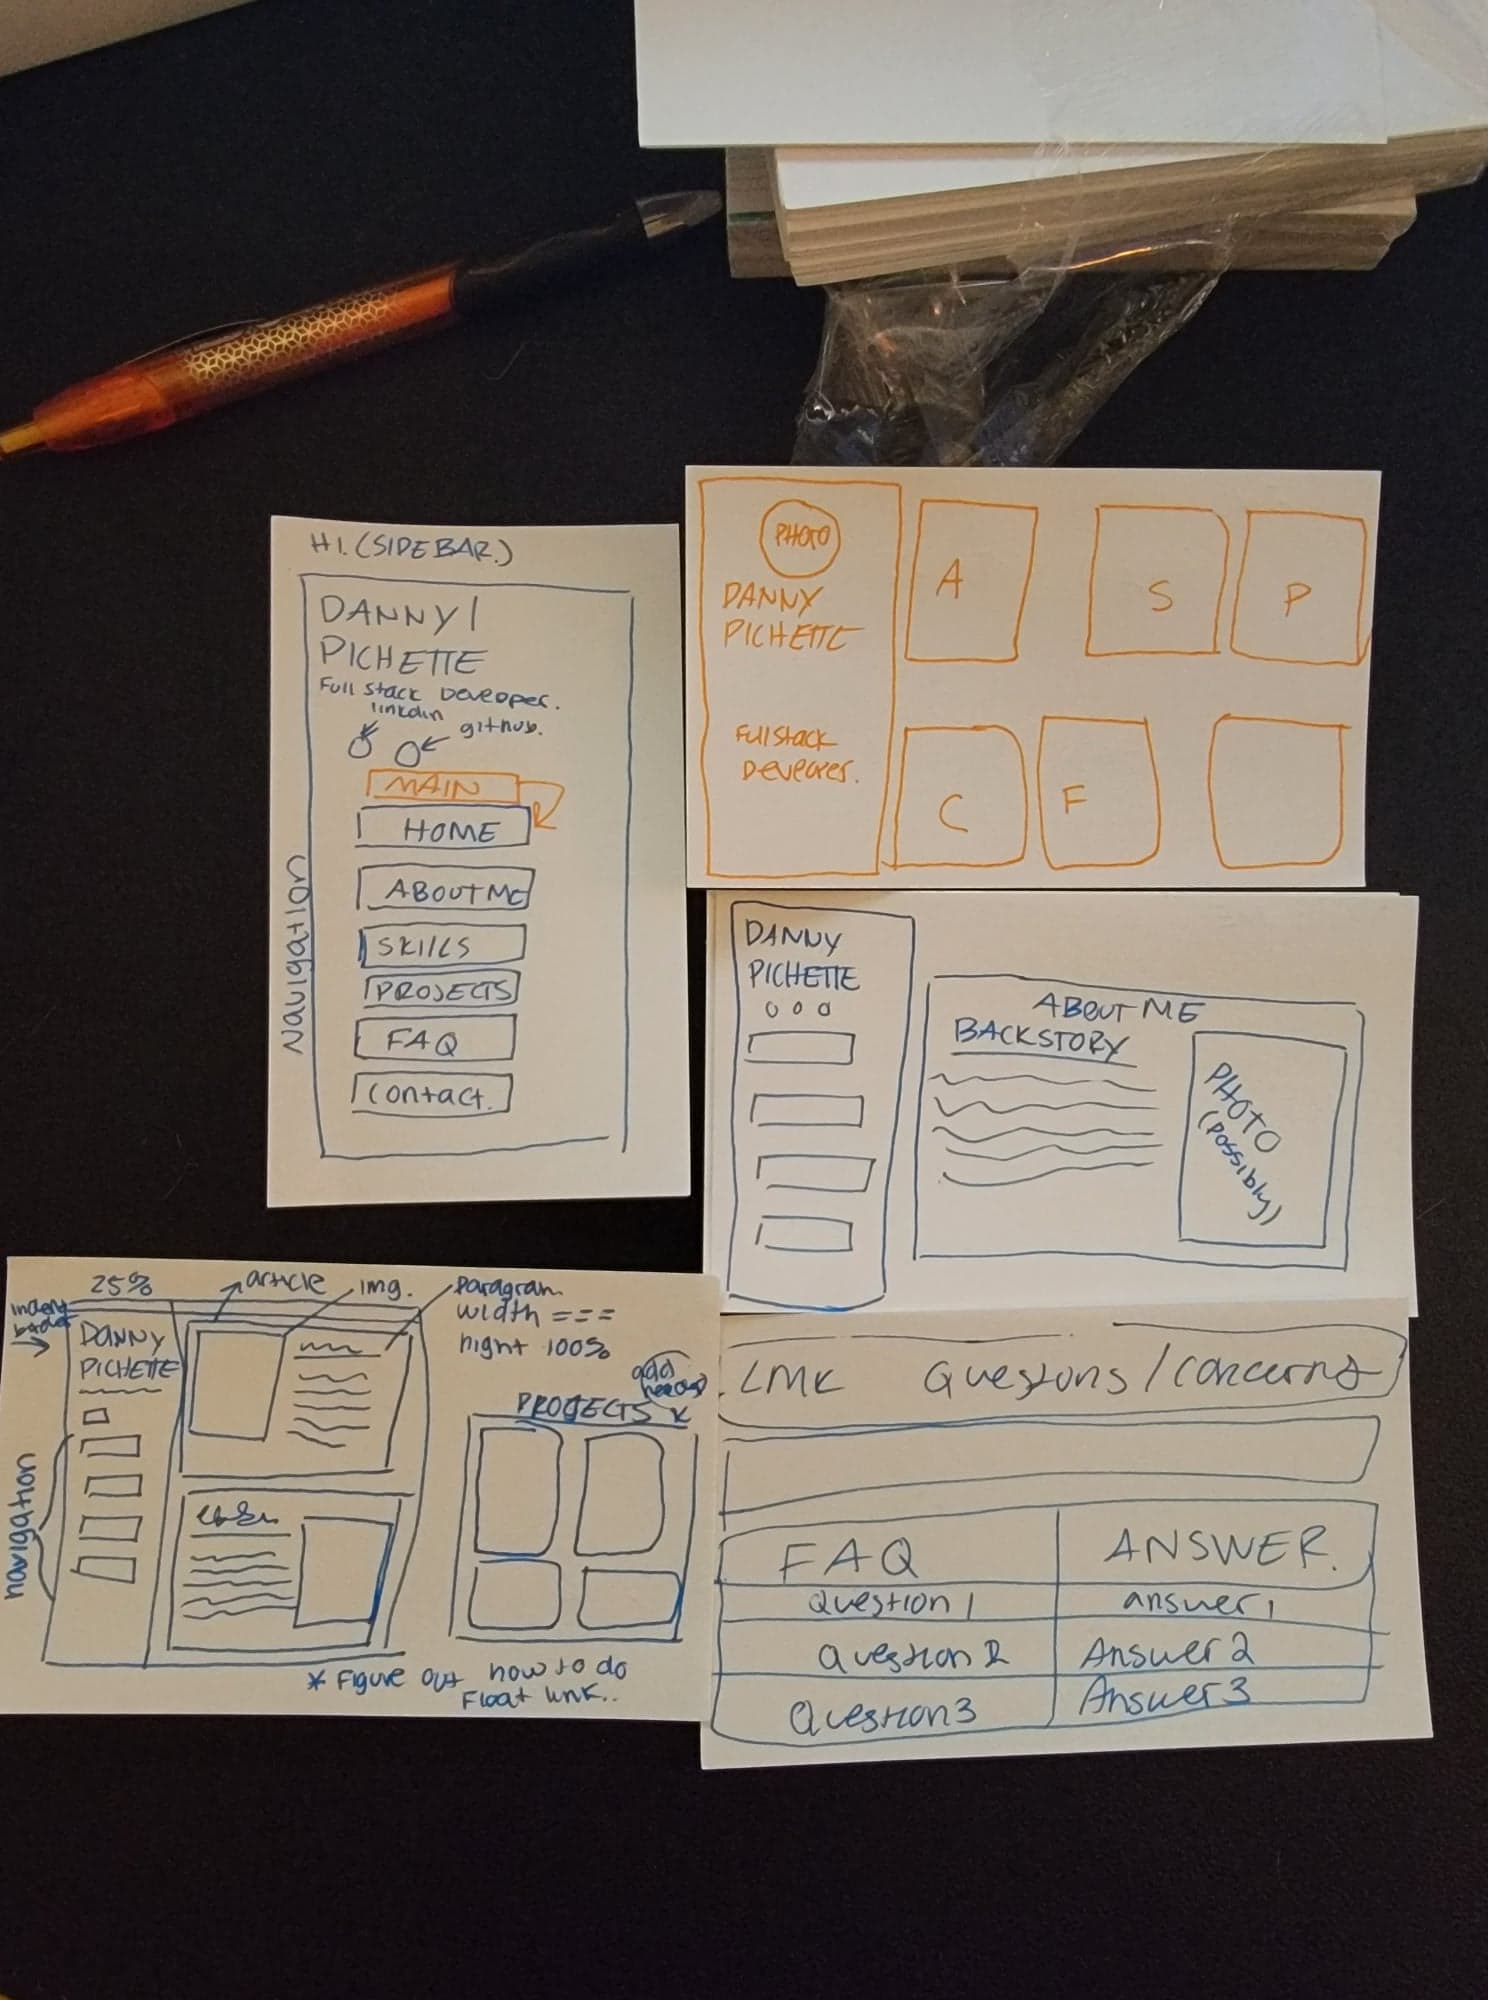 H1. (SIDEBAR.)
DANNY |
PICHETTE
Full stack Deveoper.
linkdin
github.
MAIN
HOME
ABOUT ME
SKILLS
PROJECTS
FAQ
Contact.
Navigation
PHOTO
DANNY
PICHETTE
Fullstack
A
S
P
C
F
DANNY
PICHETTE
ABOUT ME
BACKSTORY
PHOTO
(possibly)
25%
article
img.
paragram
width ===
hight 100%
add
DANNY
PICHETTE
PROJECTS
navigation
* Figure out how to do
Float link..
LMK Questions/Concerns
FAQ ANSWER.
Question 1 answer 1
Question 2 Answer 2
Question 3 Answer 3